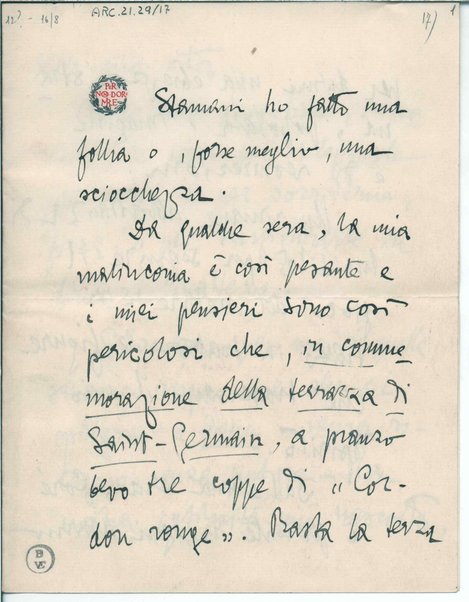 ARC.21.29/17
12? - 16/8
17)
1
PER
NON DOR
MIRE
Stamani ho fatto una
follia o, forse meglio, una
sciocchezza.
Da qualche sera, la mia
malinconia è così pesante e
i miei pensieri sono così
pericolosi che, in comme
morazione della terrazza di
Saint-Germain, a pranzo
bevo tre coppe di "Cor-
don rouge". Basta la terza
B
VE